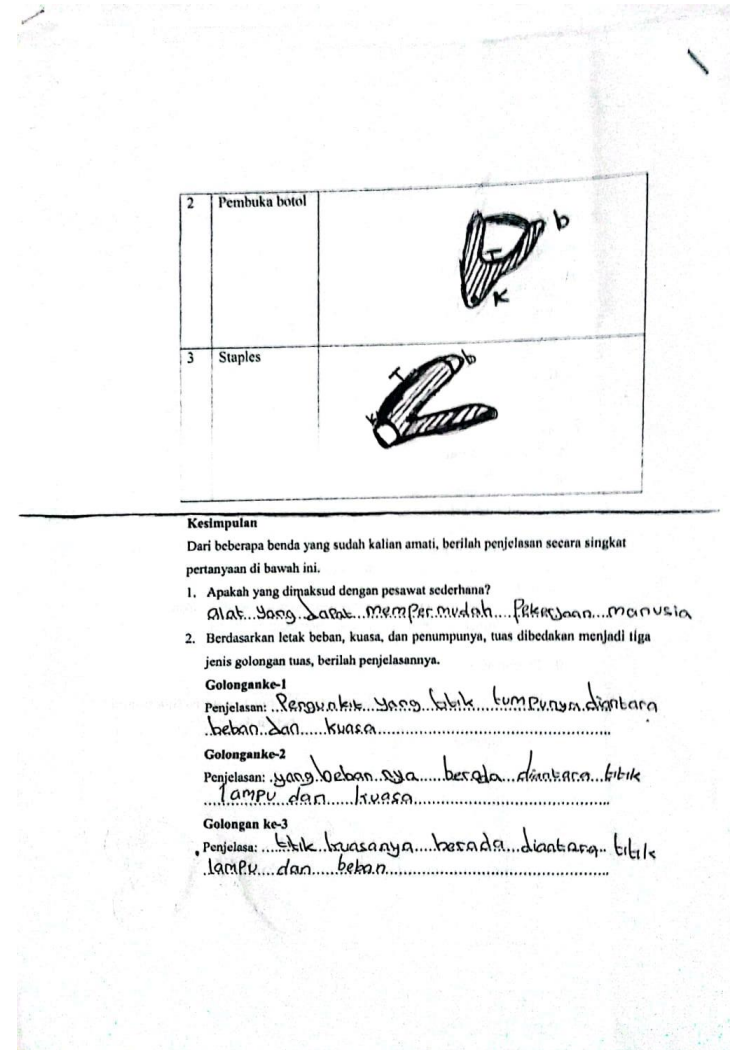 2 Pembuka botol
b
T
K
3 Staples
T
b
K
Kesimpulan
Dari beberapa benda yang sudah kalian amati, berilah penjelasan secara singkat
pertanyaan di bawah ini.
1. Apakah yang dimaksud dengan pesawat sederhana?
alat yang dapat mempermudah Pekerjaan manusia
2. Berdasarkan letak beban, kuasa, dan penumpunya, tuas dibedakan menjadi tiga
jenis golongan tuas, berilah penjelasannya.
Golonganke-1
Penjelasan: Pengunkit yang titik tumpunya diantara
beban dan kuasa
Golonganke-2
Penjelasan: yang beban nya berada diantara titik
lampu dan kuasa
Golongan ke-3
Penjelasa: titik kuasanya berada diantara titik
lampu dan beban